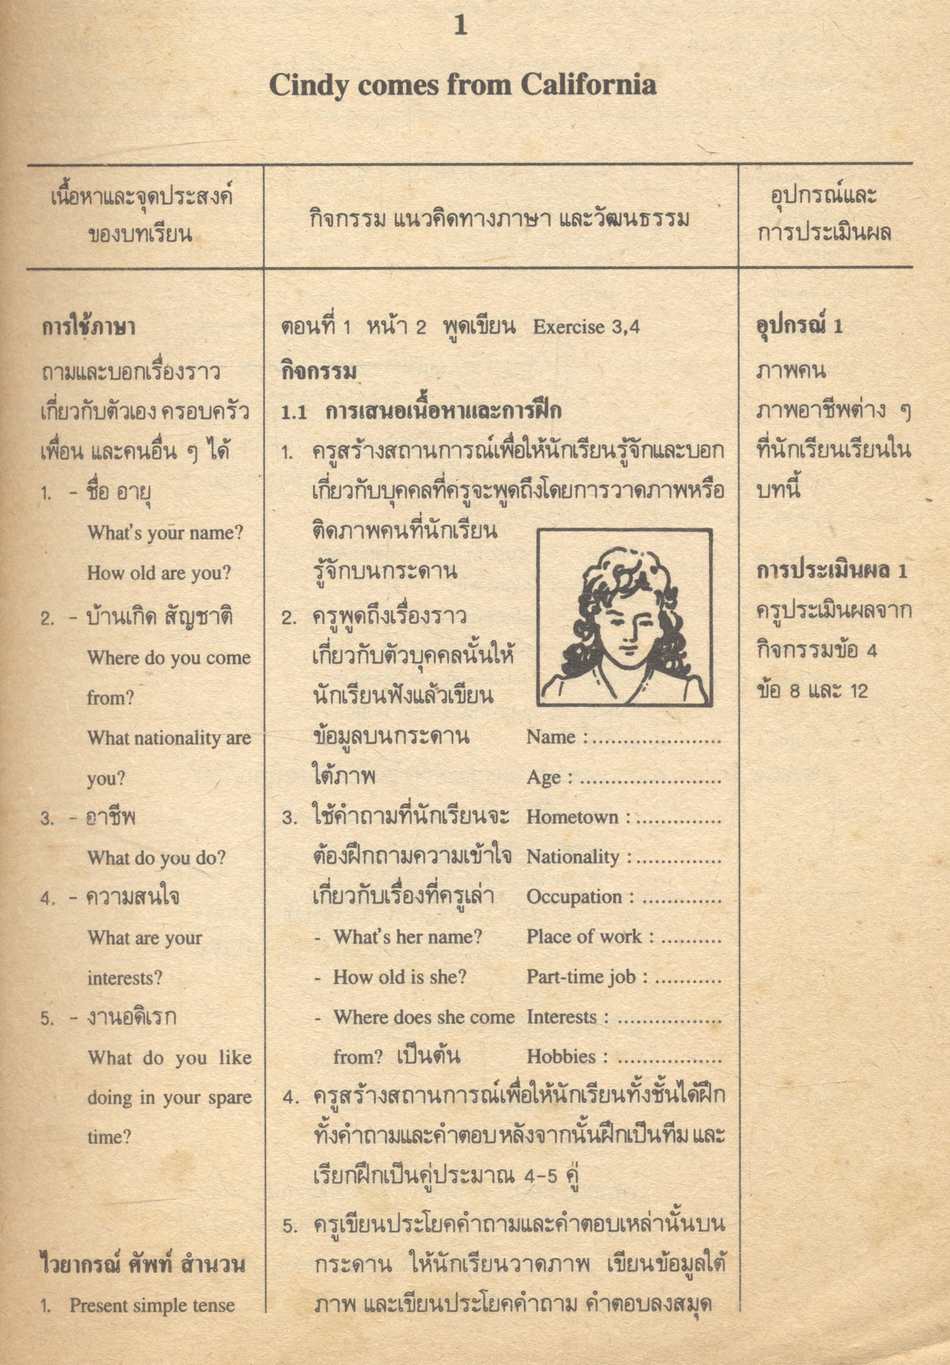 1
Cindy comes from California
เนื้อหาและจุดประสงค์
ของบทเรียน
กิจกรรม แนวคิดทางภาษา และวัฒนธรรม
อุปกรณ์และ
การประเมินผล
การใช้ภาษา
ถามและบอกเรื่องราว
เกี่ยวกับตัวเอง ครอบครัว
เพื่อน และคนอื่น ๆ ได้
1. - ชื่อ อายุ
What's your name?
How old are you?
2. - บ้านเกิด สัญชาติ
Where do you come
from?
What nationality are
you?
3. - อาชีพ
What do you do?
4. - ความสนใจ
What are your
interests?
5. - งานอดิเรก
What do you like
doing in your spare
time?
ไวยากรณ์ ศัพท์ สำนวน
1. Present simple tense
ตอนที่ 1 หน้า 2 พูดเขียน Exercise 3,4
กิจกรรม
1.1 การเสนอเนื้อหาและการฝึก
1. ครูสร้างสถานการณ์เพื่อให้นักเรียนรู้จักและบอก
เกี่ยวกับบุคคลที่ครูจะพูดถึงโดยการวาดภาพหรือ
ติดภาพคนที่นักเรียน
รู้จักบนกระดาน
2. ครูพูดถึงเรื่องราว
เกี่ยวกับตัวบุคคลนั้นให้
นักเรียนฟังแล้วเขียน
ข้อมูลบนกระดาน
ใต้ภาพ
3. ใช้คำถามที่นักเรียนจะ
ต้องฝึกถามความเข้าใจ
เกี่ยวกับเรื่องที่ครูเล่า
- What's her name?
- How old is she?
- Where does she come
from? เป็นต้น
Name :.....................
Age : .......................
Hometown :..............
Nationality :..............
Occupation : .............
Place of work : ..........
Part-time job : ...........
Interests : .................
Hobbies : .................
4. ครูสร้างสถานการณ์เพื่อให้นักเรียนทั้งชั้นได้ฝึก
ทั้งคำถามและคำตอบ หลังจากนั้นฝึกเป็นทีม และ
เรียกฝึกเป็นคู่ประมาณ 4-5 คู่
5. ครูเขียนประโยคคำถามและคำตอบเหล่านั้นบน
กระดาน ให้นักเรียนวาดภาพ เขียนข้อมูลใต้
ภาพ และเขียนประโยคคำถาม คำตอบลงสมุด
อุปกรณ์ 1
ภาพคน
ภาพอาชีพต่าง ๆ
ที่นักเรียนเรียนใน
บทนี้
การประเมินผล 1
ครูประเมินผลจาก
กิจกรรมข้อ 4
ข้อ 8 และ 12